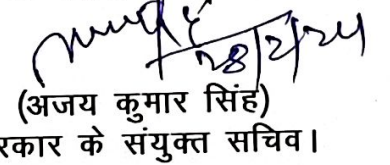 28/2/24
(अजय कुमार सिंह)
रकार के संयुक्त सचिव।